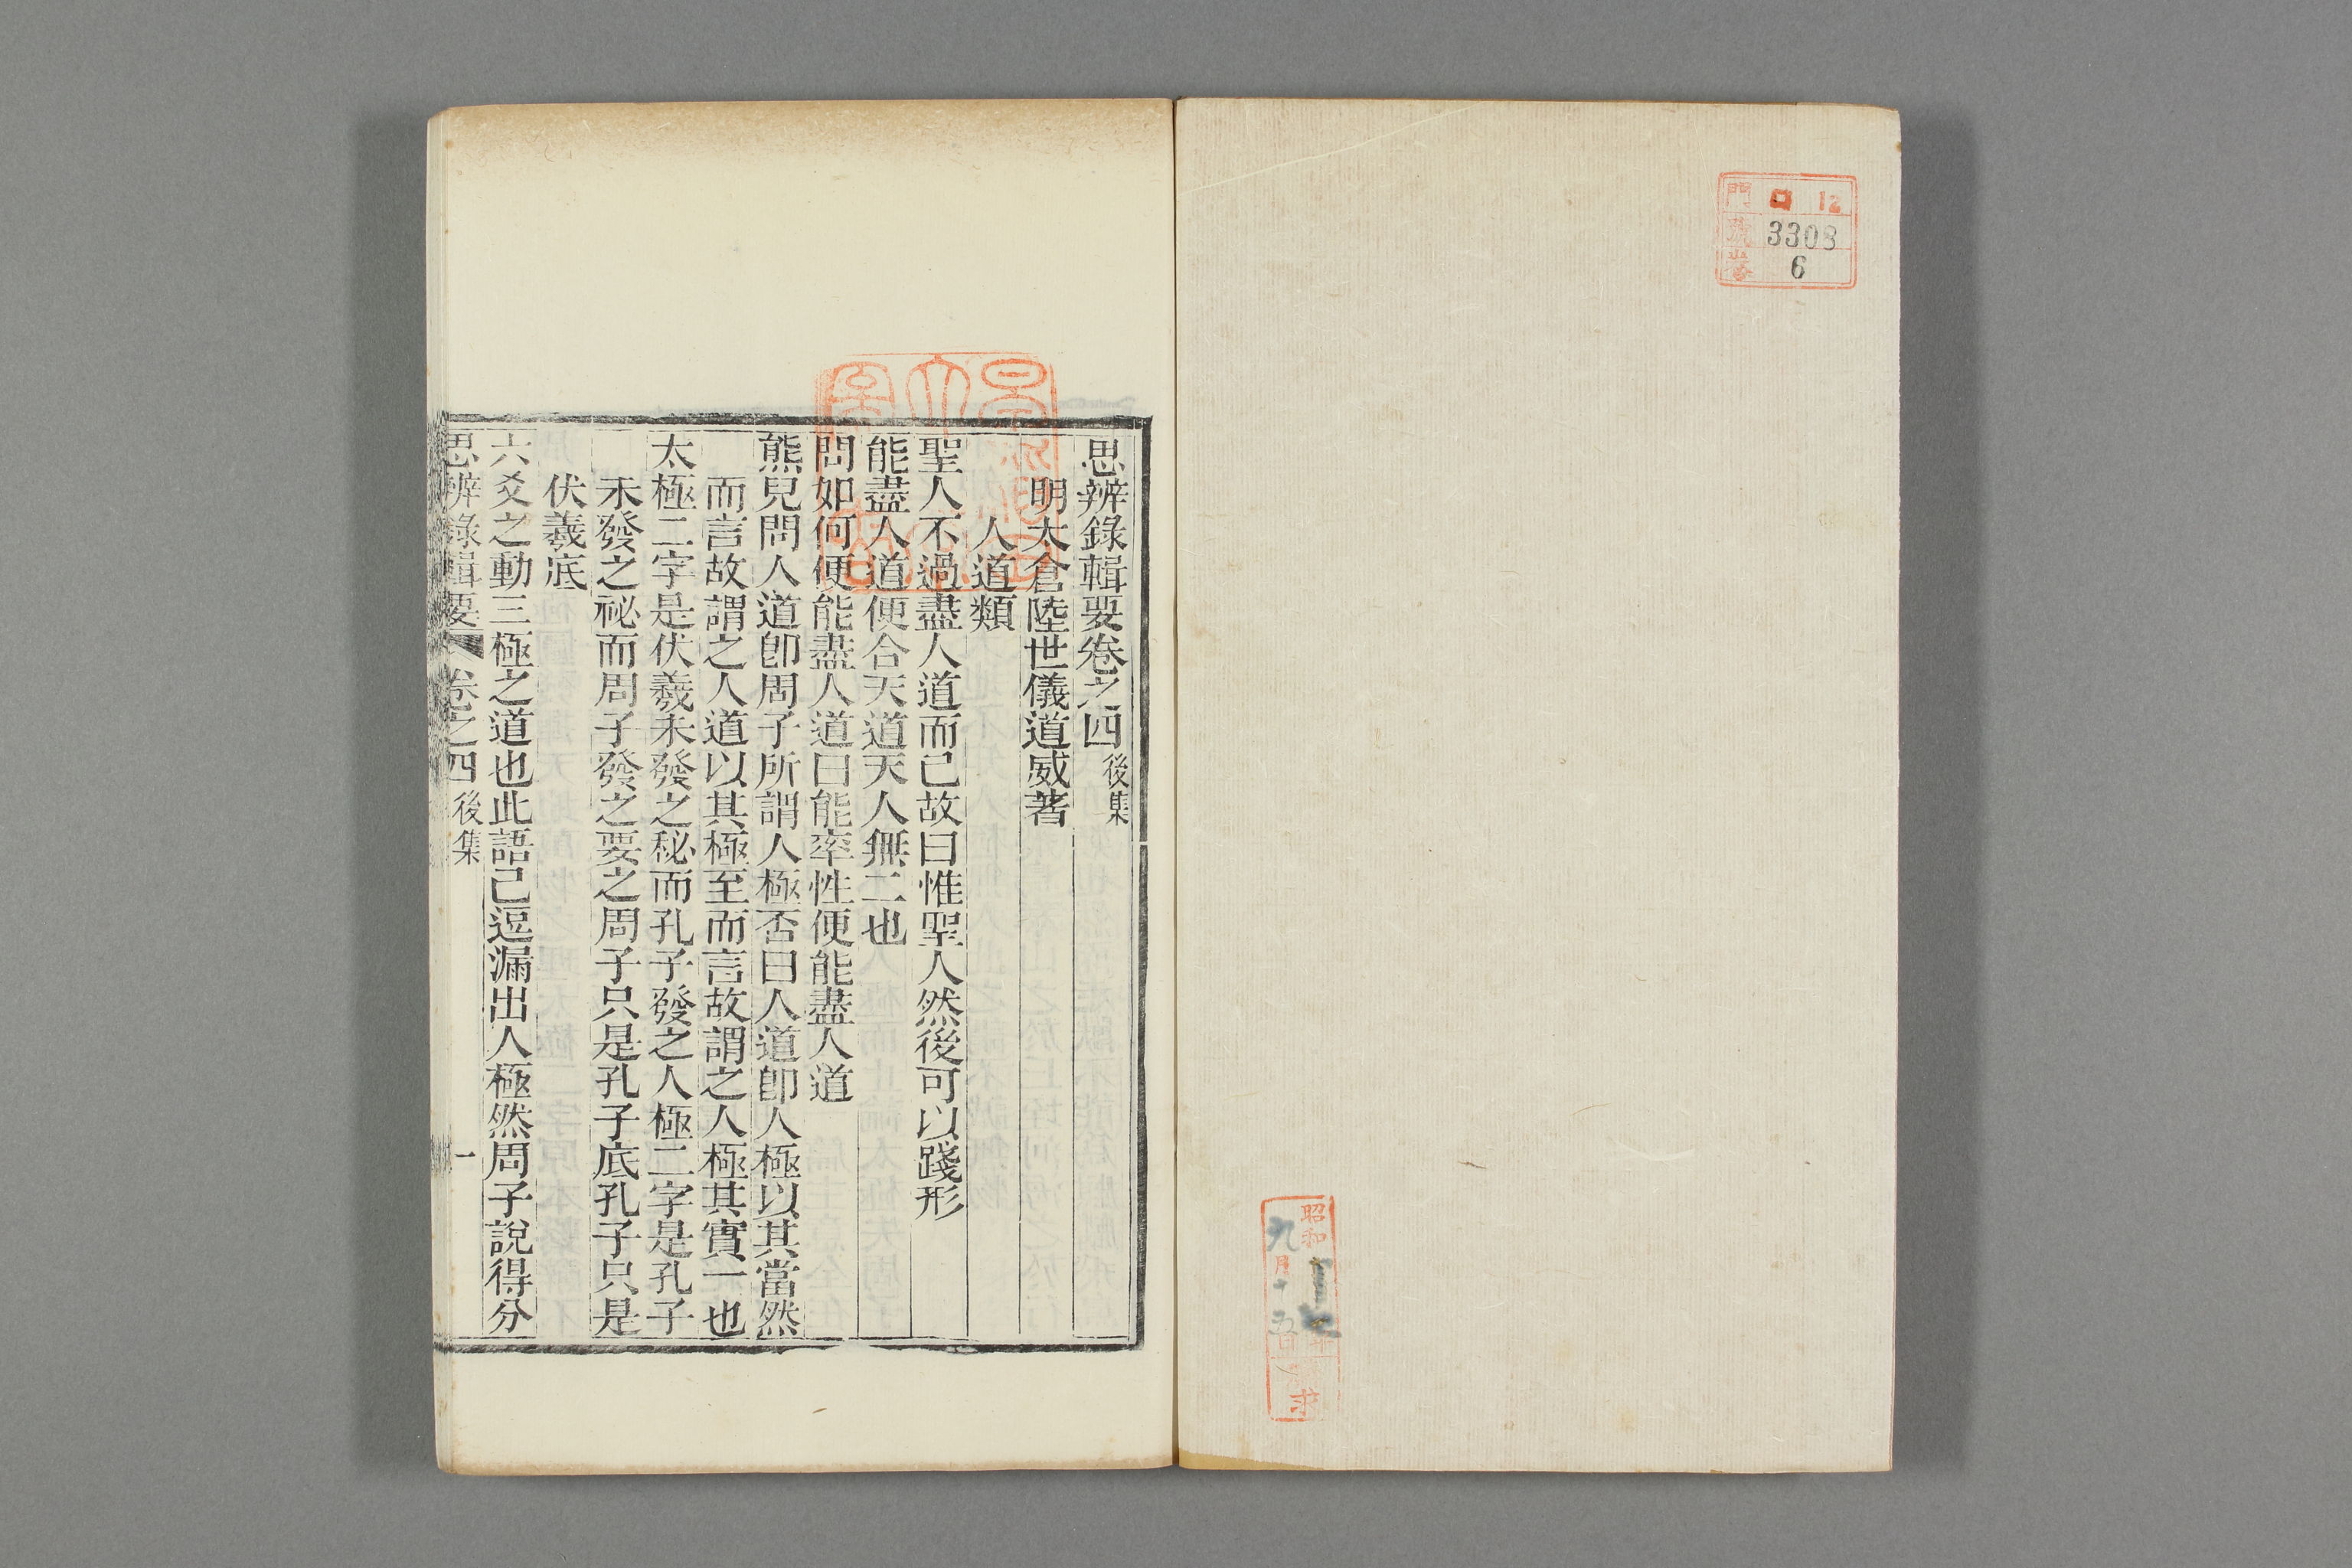 門 ロ 12
號 3308
卷 6
昭和
九月十五日
求
思辨錄輯要卷之四後集
明太倉陸世儀道威著
人道類
聖人不過盡人道而已故曰惟聖人然後可以踐形
能盡人道便合天道天人無二也
問如何便能盡人道曰能率性便能盡人道
熊兒問人道卽周子所謂人極否曰人道卽人極以其當然
而言故謂之人道以其極至而言故謂之人極其實一也
太極二字是伏羲未發之秘而孔子發之人極二字是孔子
未發之祕而周子發之要之周子只是孔子底孔子只是
伏羲底
六爻之動三極之道也此語已逗漏出人極然周子說得分
思辨錄輯要 卷之四後集 一